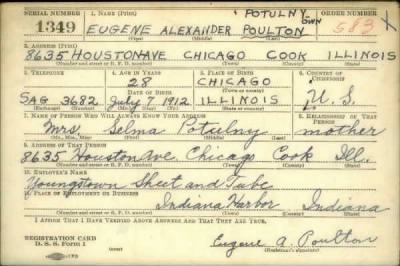 SERIAL NUMBER 1. NAME (Print) POTULNY OWN ORDER NUMBER
1349 EUGENE ALEXANDER POULTON 583 X
(First) (Middle) (Last)
2. ADDRESS (Print)
8635 HOUSTON AVE CHICAGO COOK ILLINOIS
(Number and street or R. F. D. number) (Town) (County) (State)
3. TELEPHONE 4. AGE IN YEARS 5. PLACE OF BIRTH 6. COUNTRY OF CITIZENSHIP
28 CHICAGO
DATE OF BIRTH (Town or county)
SAG 3682 July 7 1912 ILLINOIS U. S.
(Exchange) (Number) (Mo.) (Day) (Yr.) (State or country)
7. NAME OF PERSON WHO WILL ALWAYS KNOW YOUR ADDRESS 8. RELATIONSHIP OF THAT PERSON
Mrs. Selma Potulny mother
(Mr., Mrs., Miss) (First) (Middle) (Last)
9. ADDRESS OF THAT PERSON
8635 Houston Ave. Chicago Cook Ill.
(Number and street or R. F. D. number) (Town) (County) (State)
10. EMPLOYER'S NAME
Youngstown Sheet and Tube
11. PLACE OF EMPLOYMENT OR BUSINESS
Indiana Harbor Indiana
(Number and street or R. F. D. number) (Town) (County) (State)
I AFFIRM THAT I HAVE VERIFIED ABOVE ANSWERS AND THAT THEY ARE TRUE.
REGISTRATION CARD
D. S. S. Form 1 Eugene A. Poulton
(Registrant's signature)